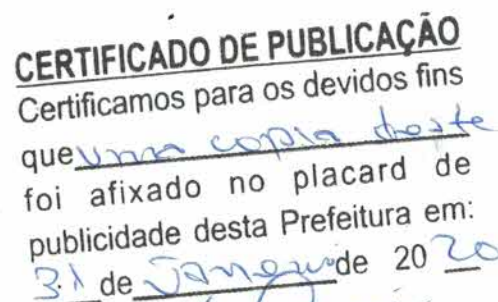 CERTIFICADO DE PUBLICAÇÃO
Certificamos para os devidos fins
que uma copia deste
foi afixado no placard de
publicidade desta Prefeitura em:
31 de Janeiro de 20 20